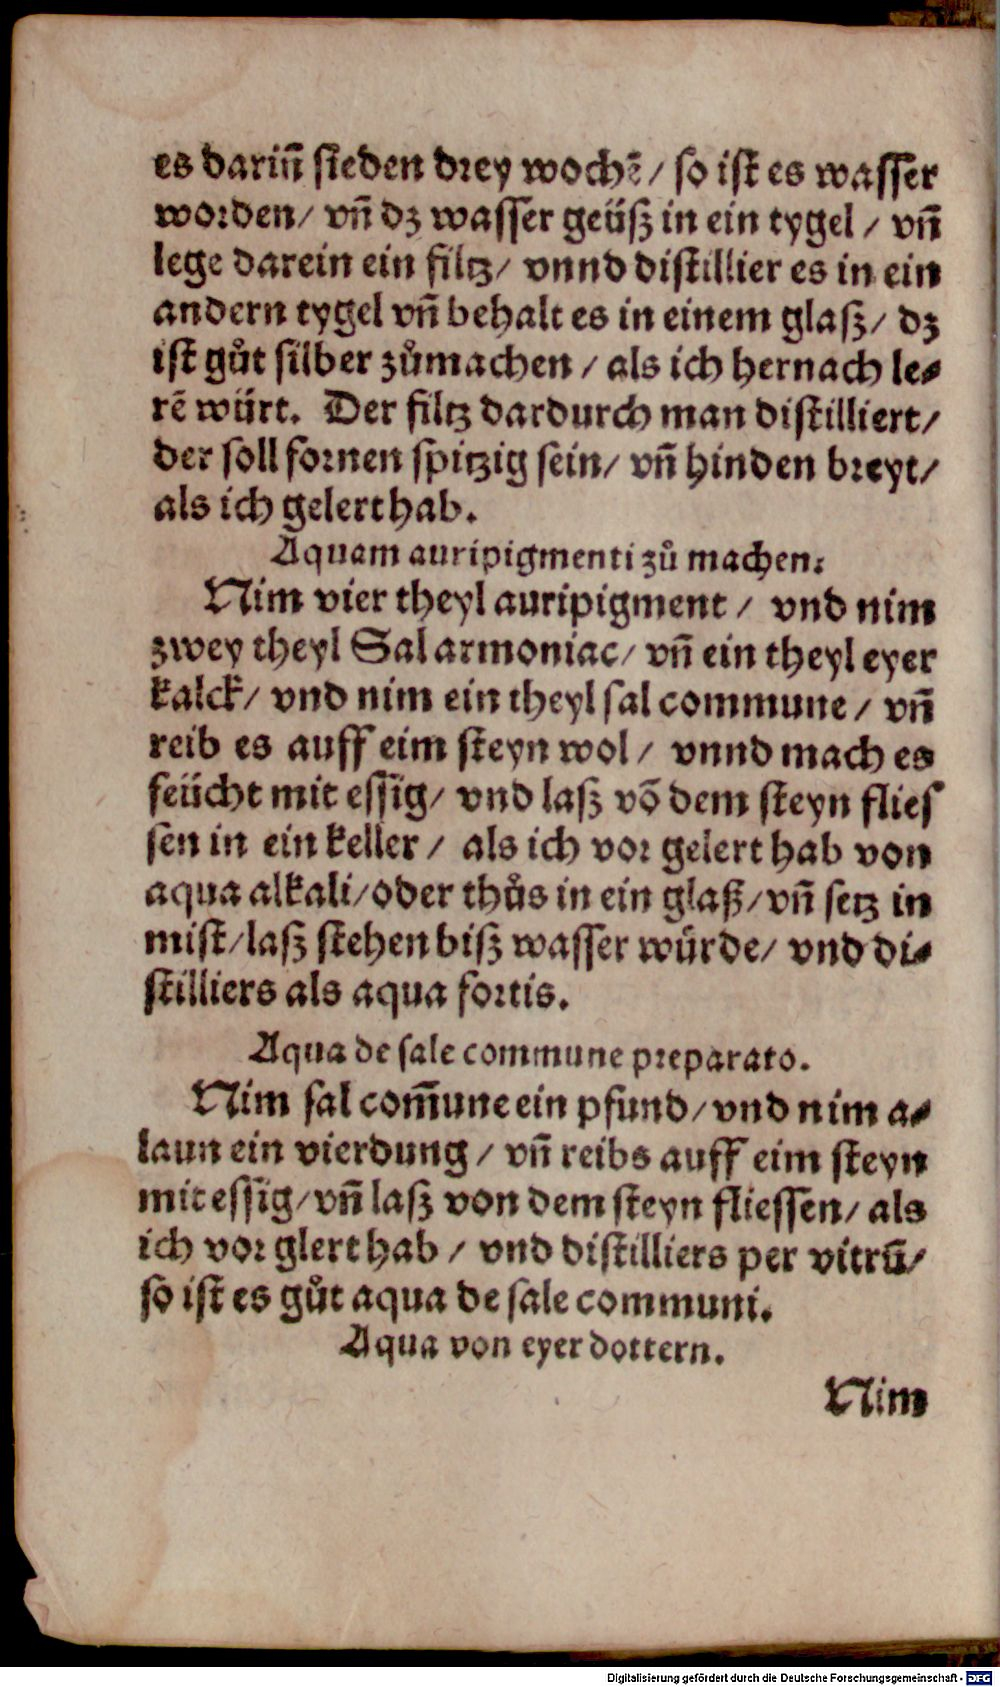 es darin̄ sieden drey wochē / so ist es wasser
worden / vn̄ dz wasser geüß in ein tygel / vn̄
lege darein ein filtz / vnnd distillier es in ein
andern tygel vn̄ behalt es in einem glaß / dz
ist gůt silber zůmachen / als ich hernach le⸗
rē würt. Der filtz dardurch man distilliert /
der soll fornen spitzig sein / vn̄ hinden breyt /
als ich gelert hab.
Aquam auripigmenti zů machen.
Nim vier theyl auripigment / vnd nim
zwey theyl Sal armoniac / vn̄ ein theyl eyer
kalck / vnd nim ein theyl sal commune / vn̄
reib es auff eim steyn wol / vnnd mach es
feücht mit essig / vnd laß vō dem steyn flies
sen in ein keller / als ich vor gelert hab von
aqua alkali / oder thůs in ein glaß / vn̄ setz in
mist / laß stehen biß wasser würde / vnd di⸗
stilliers als aqua fortis.
Aqua de sale commune preparato.
Nim sal com̄une ein pfund / vnd nim a⸗
laun ein vierdung / vn̄ reibs auff eim steyn
mit essig / vn̄ laß von dem steyn fliessen / als
ich vor glert hab / vnd distilliers per vitrū /
so ist es gůt aqua de sale communi.
Aqua von eyer dottern.
Nim
Digitalisierung gefördert durch die Deutsche Forschungsgemeinschaft - DFG